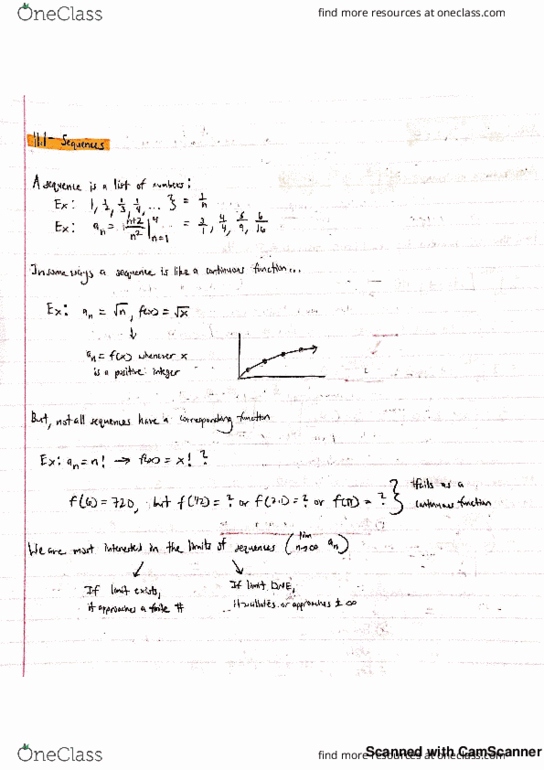 OneClass
find more resources at oneclass.com
11.1 - Sequences
A sequence is a list of numbers:
Ex: 1, 1/2, 1/3, 1/4, ... } = 1/n
Ex: aₙ = n+2/n² |⁴ₙ₌₁ = 3/1, 4/4, 5/9, 6/16
In some ways a sequence is like a continuous function...
Ex: aₙ = √n, f(x) = √x
↓
aₙ = f(x) whenever x
is a positive integer
But, not all sequences have a corresponding function
Ex: aₙ = n! → f(x) = x! ?
f(6) = 720, but f(1/2) = ? or f(2.1) = ? or f(π) = ? } fails as a
continuous function
We are most interested in the limits of sequences (lim n→∞ aₙ)
If limit exists,
it approaches a finite #
If limit DNE,
it oscillates or approaches ± ∞
OneClass
find more resources at oneclass.com
Scanned with CamScanner